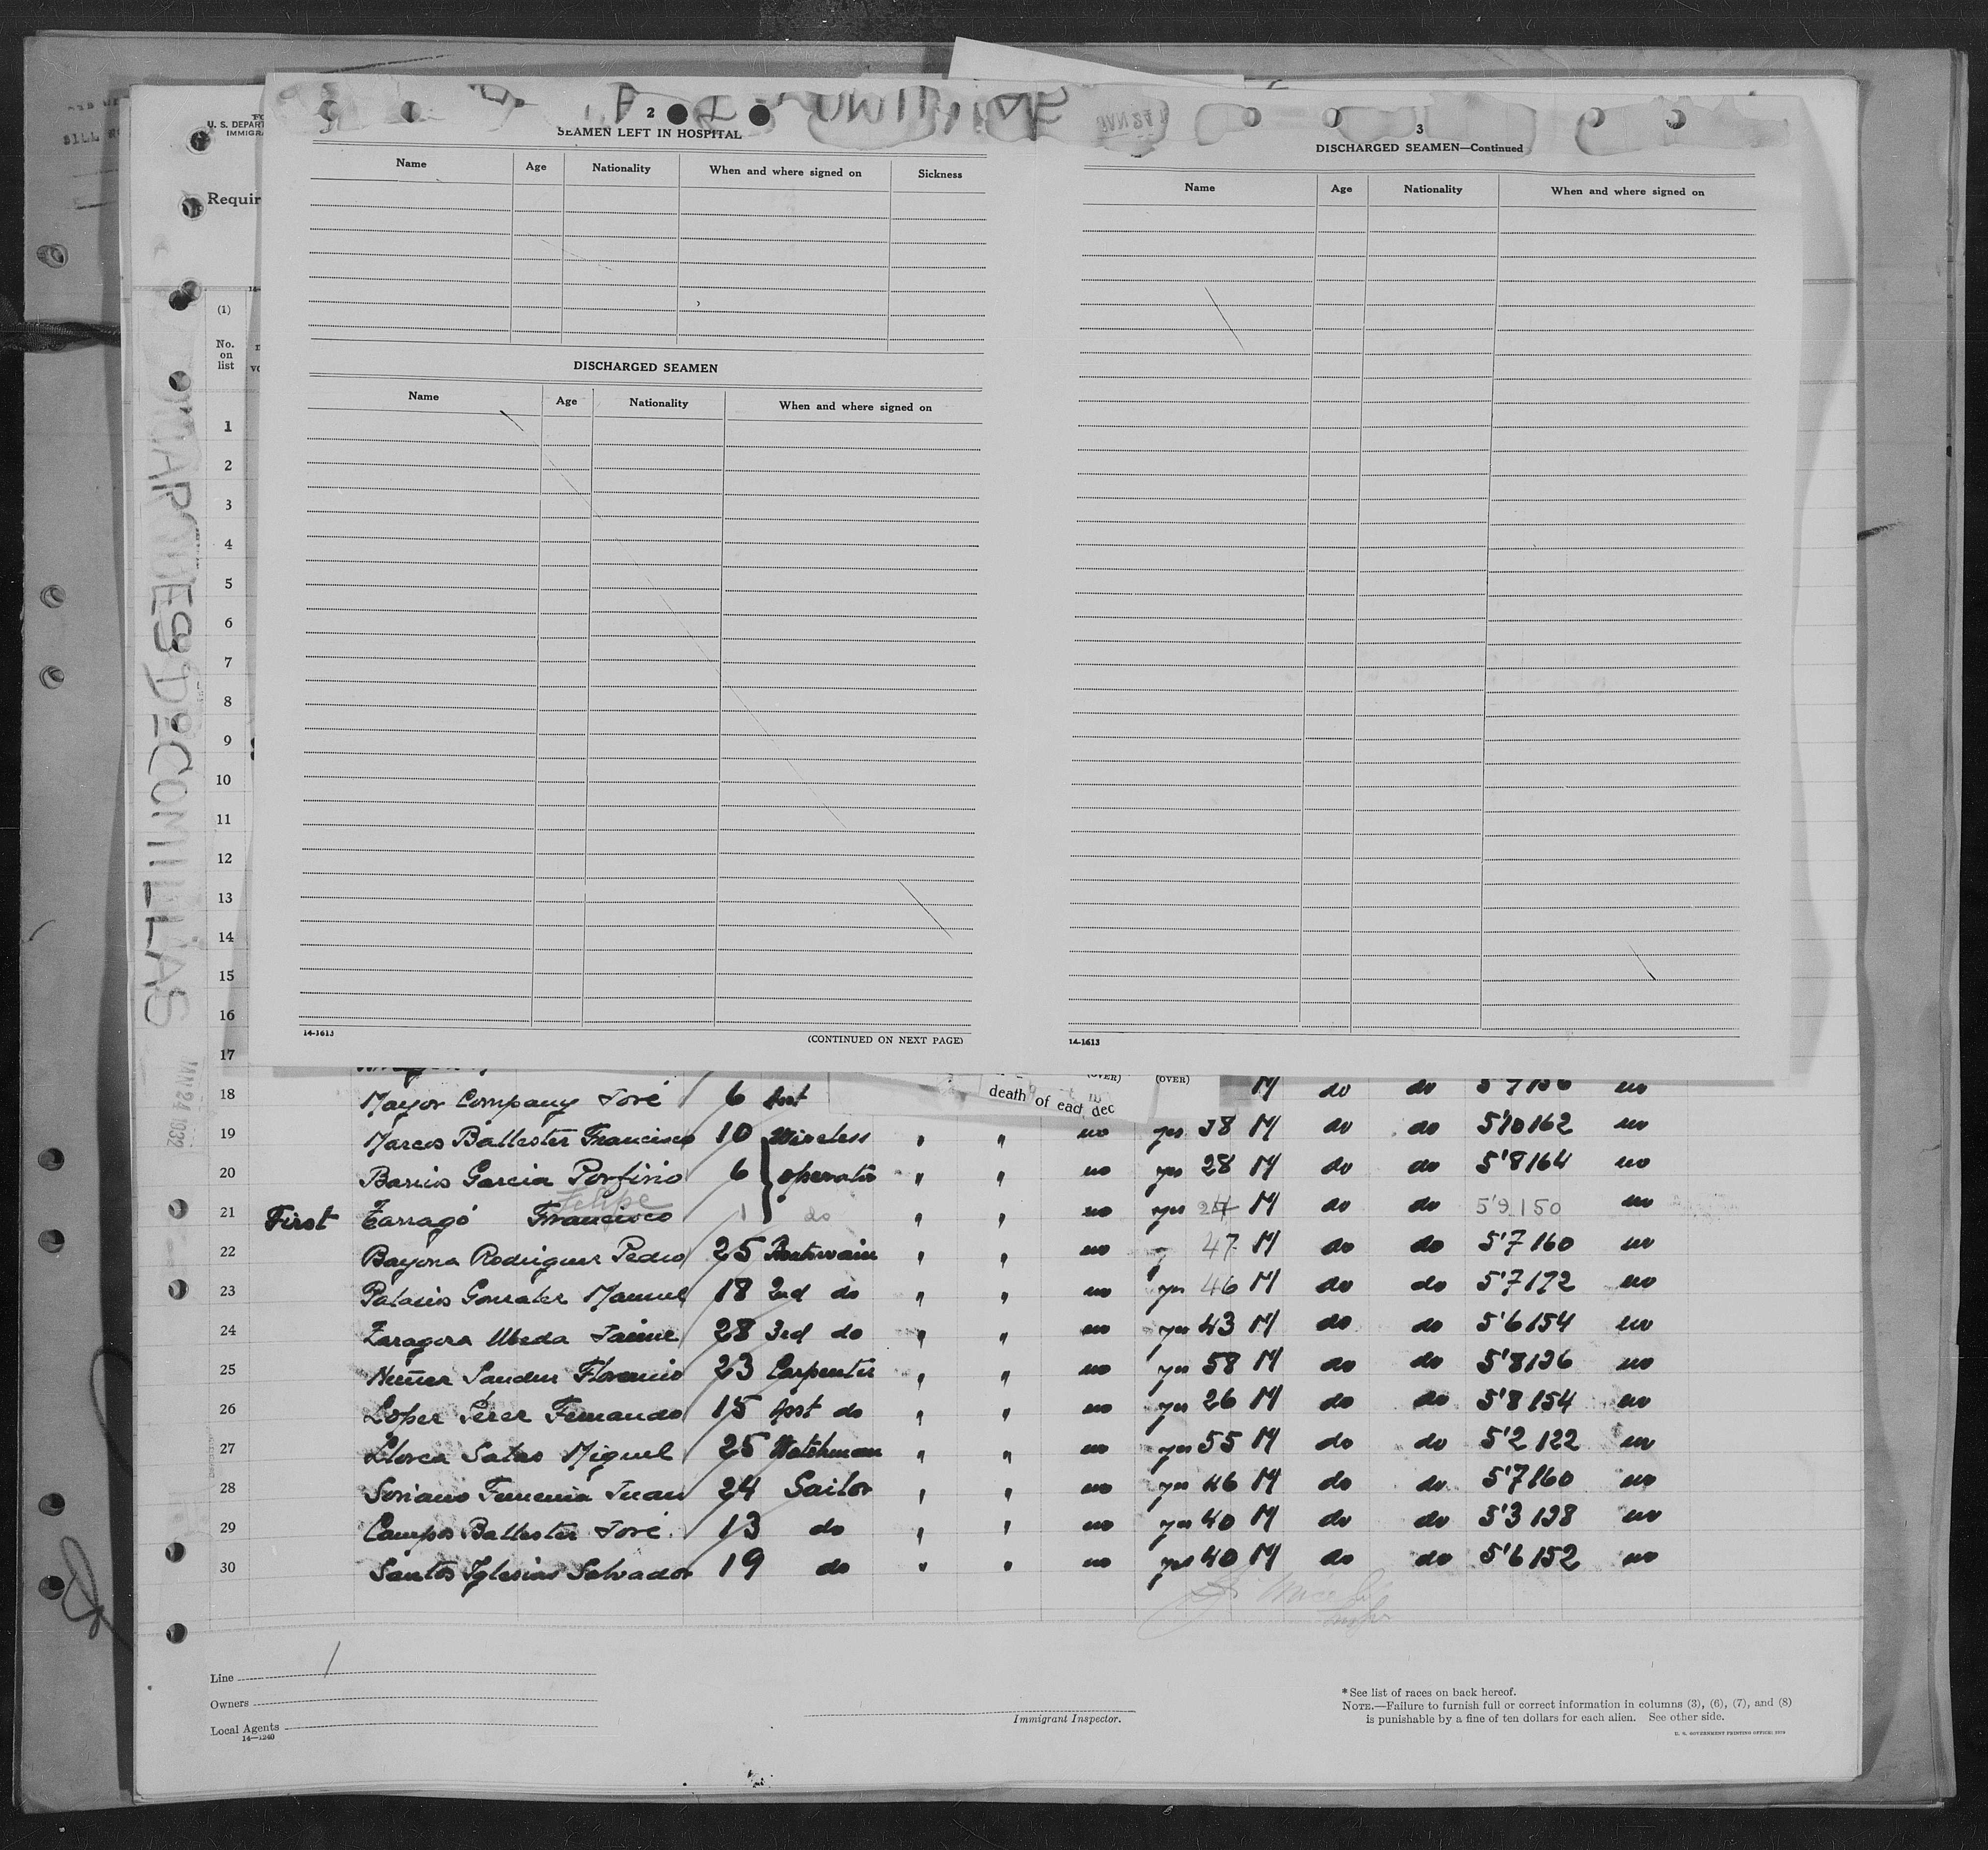 U. S. DEPART
IMMIGRA
Requir
(1)
No.
on
list
2
SEAMEN LEFT IN HOSPITAL
Name Age Nationality When and where signed on Sickness
DISCHARGED SEAMEN
Name Age Nationality When and where signed on
14-1613
(CONTINUED ON NEXT PAGE)
3
DISCHARGED SEAMEN—Continued
Name Age Nationality When and where signed on
14-1613
MARQUES DE COMILLAS
JAN 24 1932
1
2
3
4
5
6
7
8
9
10
11
12
13
14
15
16
17
(OVER) (OVER)
death of each dec
18 Mayor Company José 6 Asst M do do no
19 Marcos Ballester Francisco 10 Wireless " " no yes 38 M do do 5'10 162 no
20 Barrios Garcia Porfirio 6 operator " " no yes 28 M do do 5'8 164 no
Felipe
21 First Tarragó Francisco 1 do " " no yes 24 M do do 5'9 150 no
22 Bayona Rodriguez Pedro 25 Boatswain " " no 47 M do do 5'7 160 no
23 Palacios Gonzalez Manuel 18 2nd do " " no yes 46 M do do 5'7 172 no
24 Zaragoza Ubeda Jaime 28 3rd do " " no yes 43 M do do 5'6 154 no
25 Nuñez Florencio 23 Carpenter " " no yes 58 M do do 5'8 136 no
26 Lopez Perez Fernando 15 Asst do " " no yes 26 M do do 5'8 154 no
27 Llorca Salas Miguel 25 Watchman " " no yes 55 M do do 5'2 122 no
28 Soriano Femenia Juan 24 Sailor " " no yes 46 M do do 5'7 160 no
29 Campos Ballester José 13 do " " no yes 40 M do do 5'3 138 no
30 Santos Iglesias Salvador 19 do " " no yes 40 M do do 5'6 152 no
Line
Owners
Local Agents
14—1240
Immigrant Inspector.
* See list of races on back hereof.
NOTE.—Failure to furnish full or correct information in columns (3), (6), (7), and (8)
is punishable by a fine of ten dollars for each alien. See other side.
U. S. GOVERNMENT PRINTING OFFICE: 1929